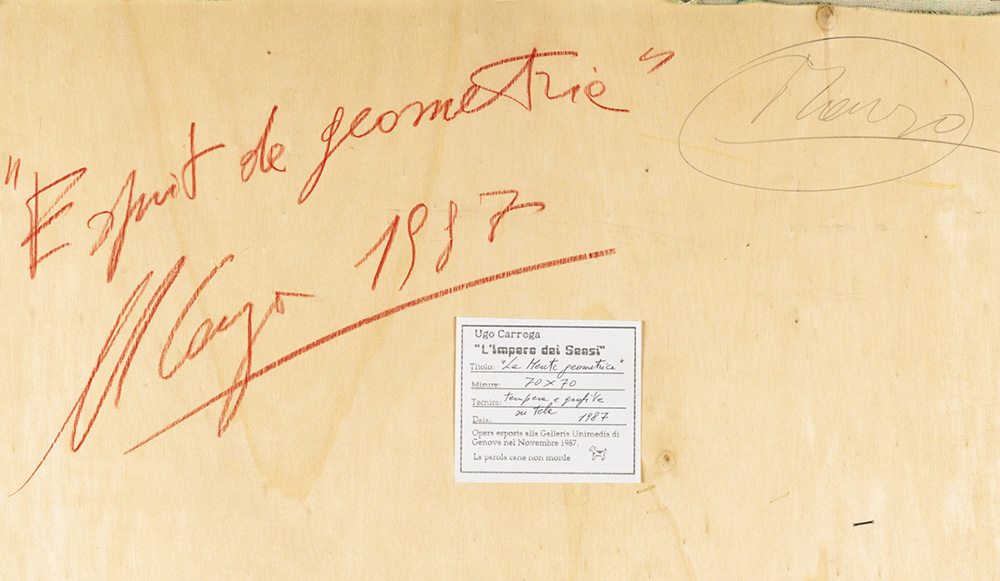 "Esprit de geometrie"
1987
Ugo Carrega
"L'Impero dei Sensi"
Titolo: "La Mente geometrica"
Misure: 70 x 70
Tecnica: tempera e grafite
su tela
Data: 1987
Opera esposta alla Galleria Unimedia di
Genova nel Novembre 1987.
La parola cane non morde